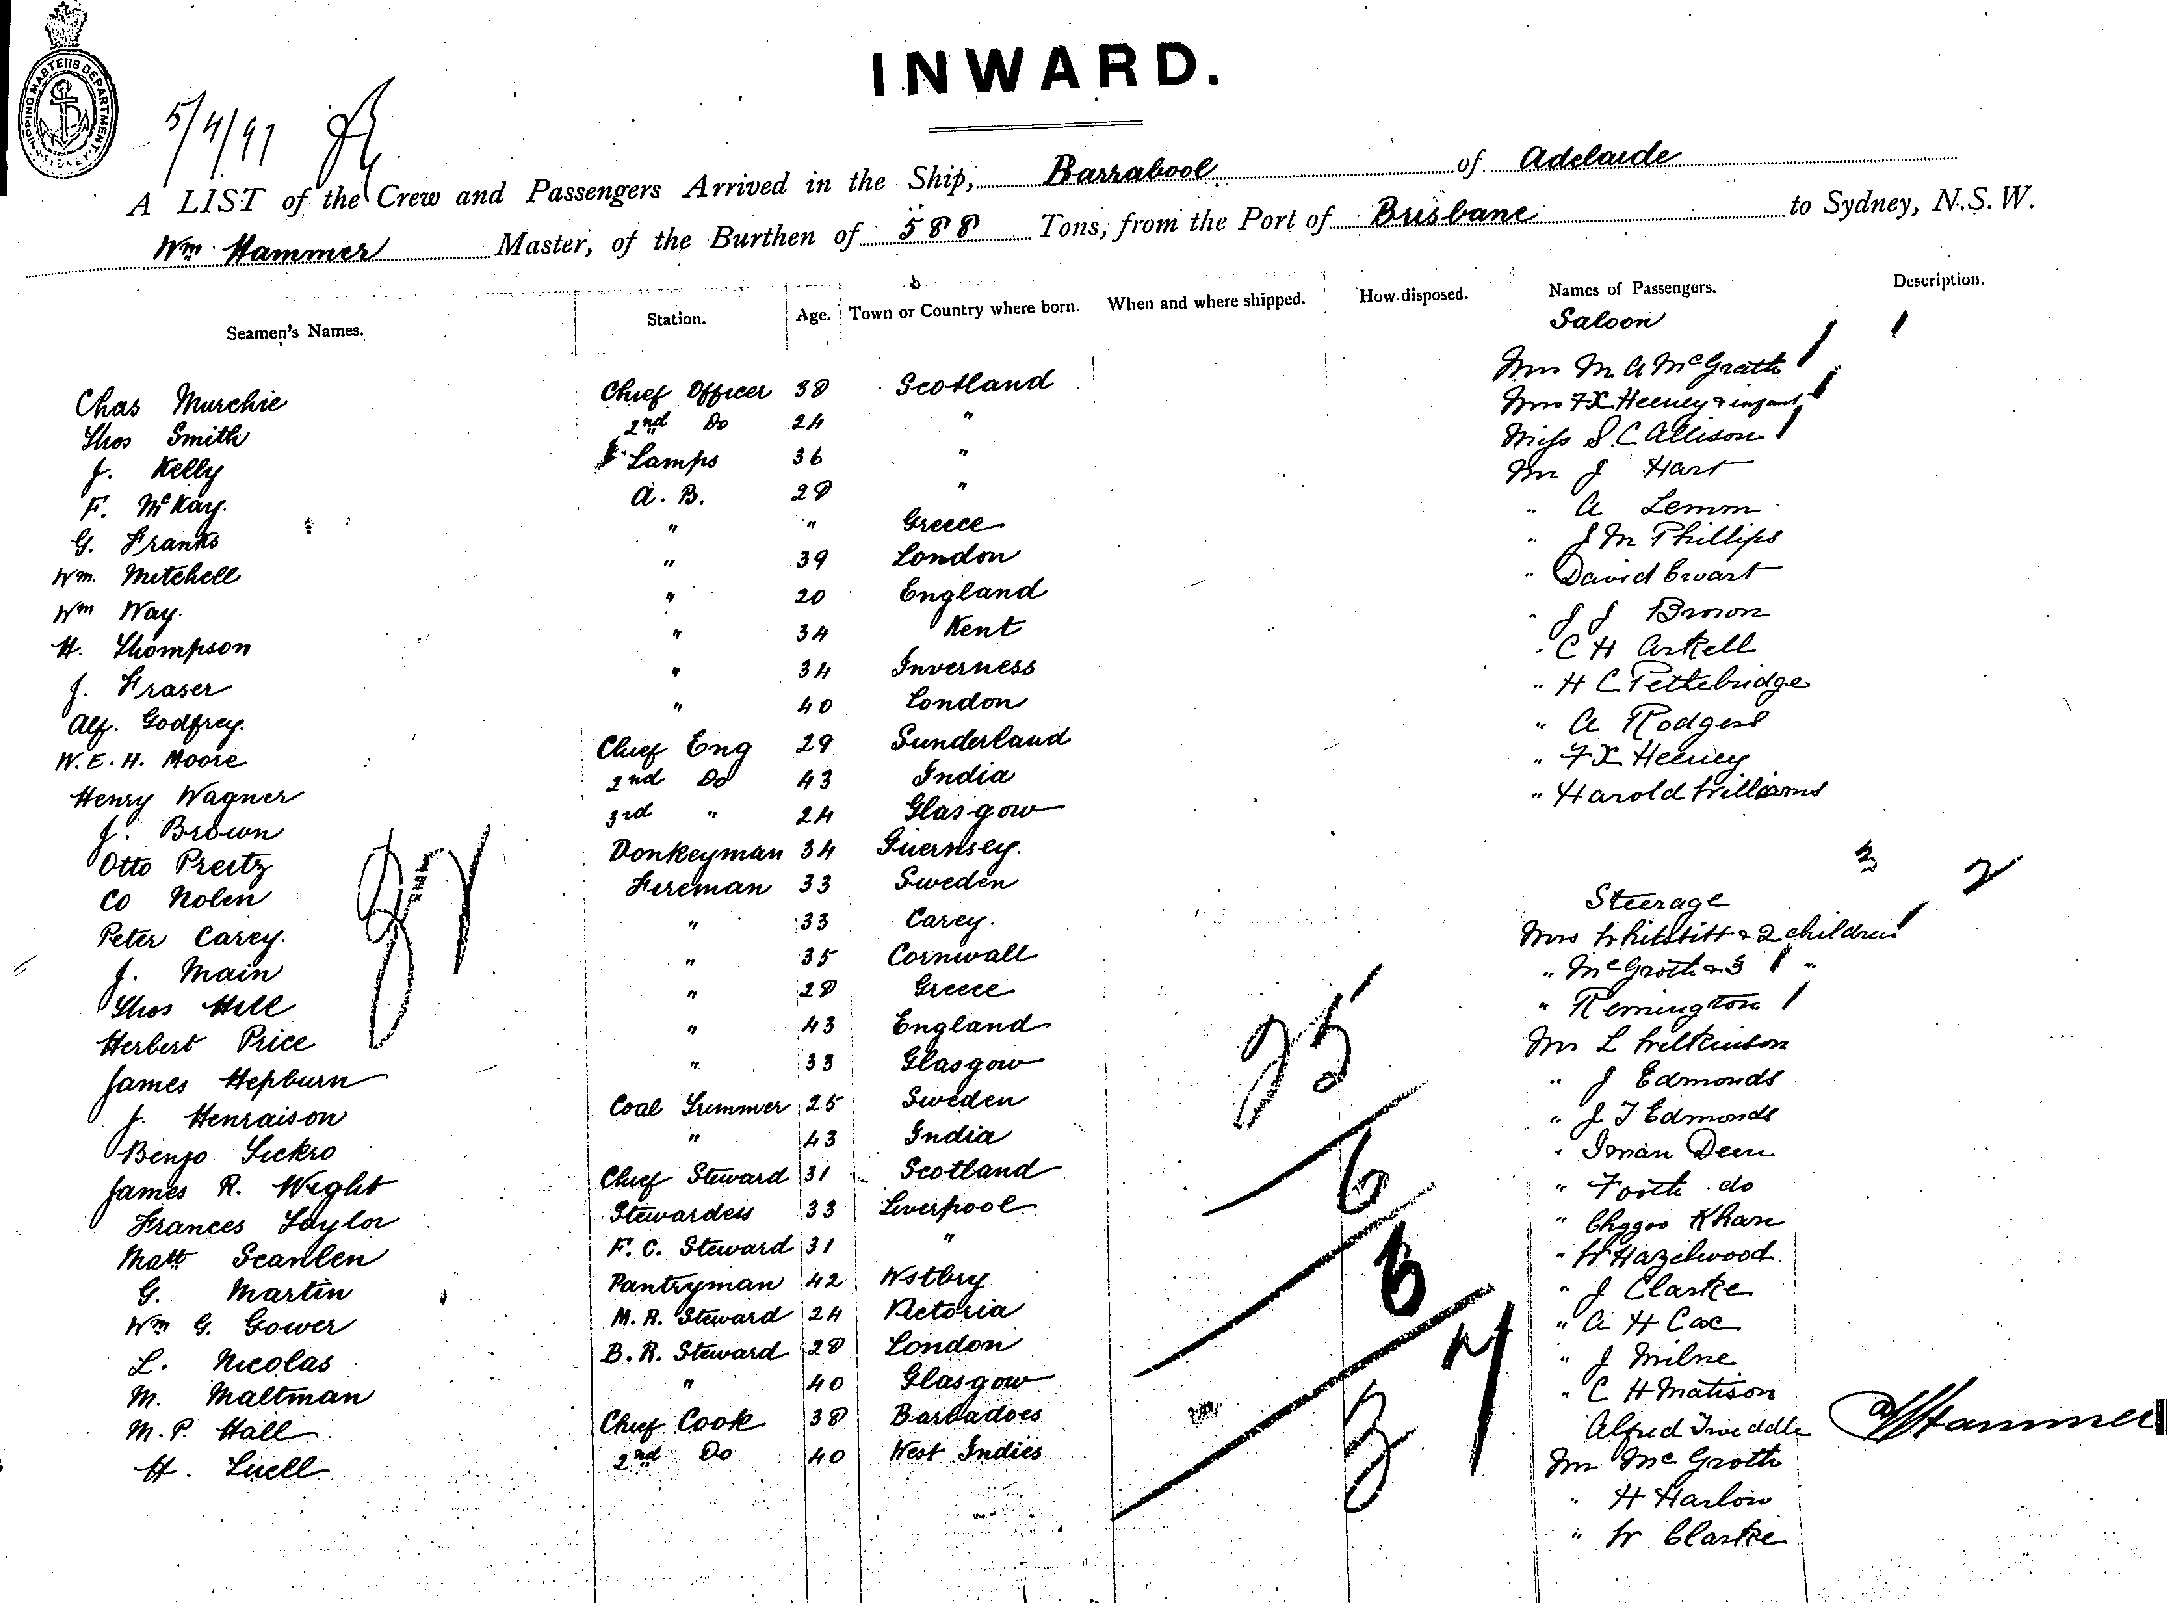 SHIPPING MASTERS DEPARTMENT
SYDNEY
5/4/97
INWARD.
A LIST of the Crew and Passengers Arrived in the Ship, Barrabool of Adelaide
Wm Hammer Master, of the Burthen of 588 Tons, from the Port of Brisbane to Sydney, N.S.W.
Seamen's Names. Station. Age. Town or Country where born. When and where shipped. How disposed. Names of Passengers. Description.
Chas Murchie Chief Officer 38 Scotland
Thos Smith 2nd Do 24 "
J. Kelly Lamps 36 "
F. McKay. A. B. 28 "
G. Franks " " Greece
Wm. Mitchell " 39 London
Wm Way. " 20 England
H. Thompson " 34 Kent
J. Fraser " 34 Inverness
Alf. Godfrey. " 40 London
W. E. H. Moore Chief Eng 29 Sunderland
Henry Wagner 2nd Do 43 India
J. Brown 3rd " 24 Glasgow
Otto Prertz Donkeyman 34 Guernsey.
Co Nolen Fireman 33 Sweden
Peter Carey. " 33 Carey.
J. Main " 35 Cornwall
Thos Hill " 28 Greece
Herbert Price " 43 England
James Hepburn " 33 Glasgow
J. Henraison Coal Trimmer 25 Sweden
Benjo Sickro " 43 India
James R. Wright Chief Steward 31 Scotland
Frances Taylor Stewardess 33 Liverpool
Matt Scanlen F. C. Steward 31 "
G. Martin Pantryman 42 Wstbry
Wm G. Gower M. R. Steward 24 Victoria
L. Nicolas B. R. Steward 28 London
M. Maltman " 40 Glasgow
M. P. Hall Chief Cook 38 Barbadoes
H. Luell 2nd Do 40 West Indies
25
6
6
37
Saloon
Mrs M A McGrath 1
Mrs F X Heeney & infant 1
Miss S. C Allison 1
Mr J Hart
" A Lemon
" J M Phillips
" David Ewart
" J J Brown
" C H Arkell
" H C Pethebridge
" A Rodgers
" F X Heeney
" Harold Williams
3 2
Steerage
Mrs Whitstitt & 2 children 1
" McGroth & 3 1 "
" Remington 1
Mr L Wilkinson
" J Edmonds
" J T Edmonds
" Iman Deen
" do
" Khan
" W Hazelwood
" J Clarke
" A H Cox
" J Milne
" C H Matison
Alfred Tweddle
Mr McGroth
" H Harlow
" W Clarke
W Hammer